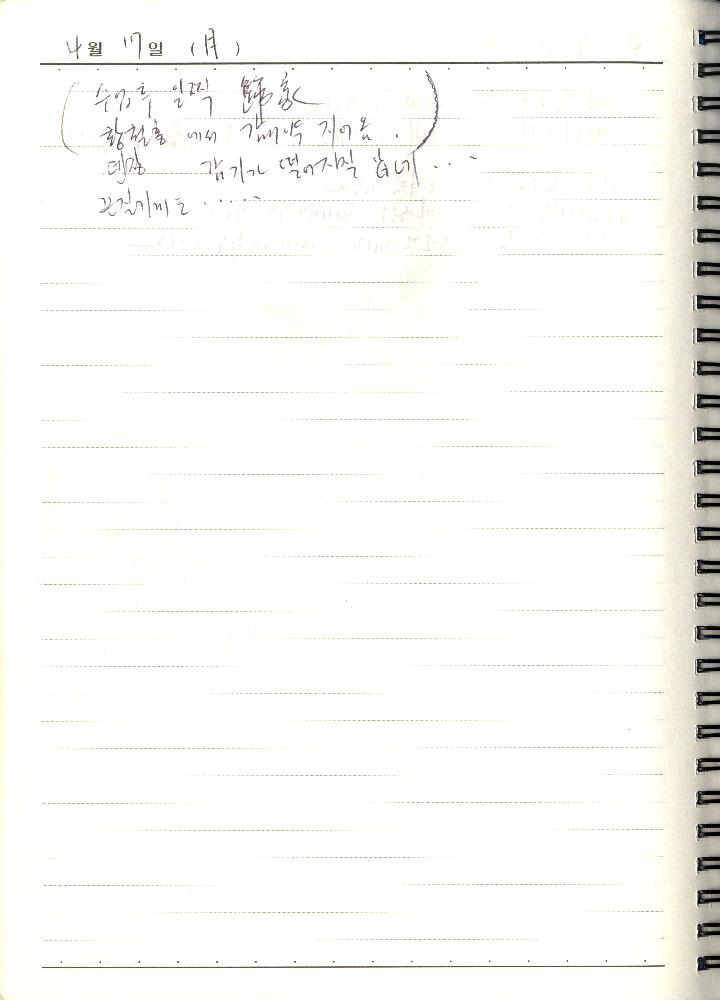 4월 17일 (月)
수업후 일찍 歸家
황철홍 에서 감기약 지어옴.
감기가 떨어지질 않네...
끈질기게도.....